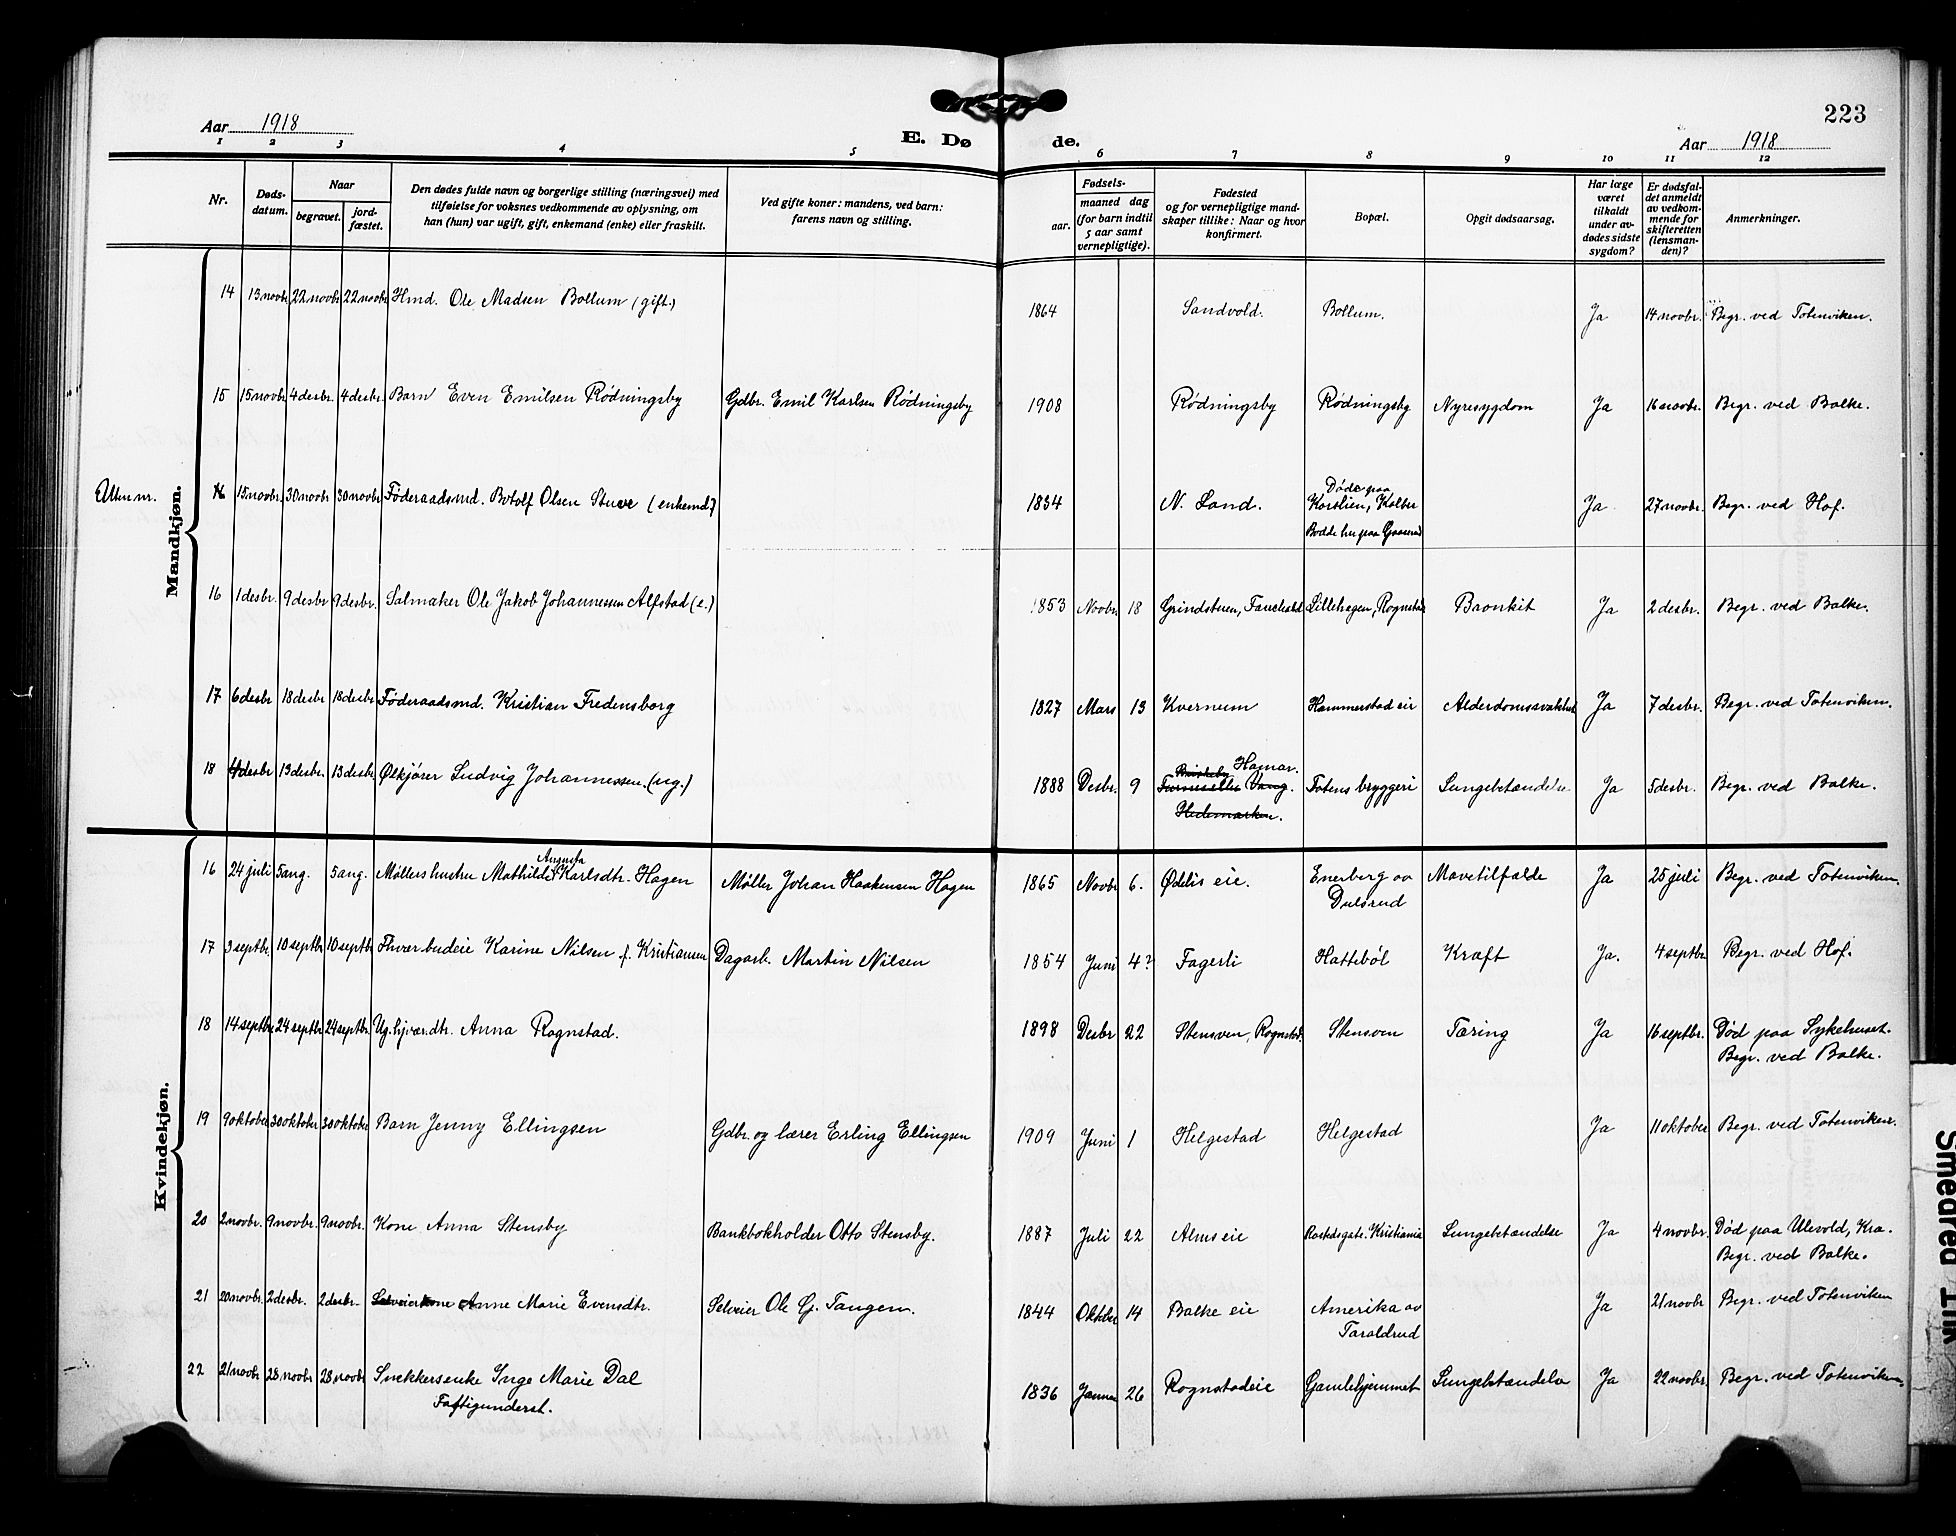 223
Aar 1918
E. Dø de.
Aar 1918
1 2 3 4 5 6 7 8 9 10 11 12
Nr.
Døds-
datum.
Naar
begravet.
jord-
fæstet.
Den dødes fulde navn og borgerlige stilling (næringsvei) med
tilføielse for voksnes vedkommende av oplysning, om
han (hun) var ugift, gift, enkemand (enke) eller fraskilt.
Ved gifte koner: mandens, ved barn:
farens navn og stilling.
Fødsels-
aar.
maaned dag
(for barn indtil
5 aar samt
vernepligtige).
Fødested
og for vernepligtige mand-
skaper tillike: Naar og hvor
konfirmert.
Bopæl.
Opgit dødsaarsag.
Har læge
været
tilkaldt
under av-
dødes sidste
sygdom?
Er dødsfal-
det anmeldt
av vedkom-
mende for
skifteretten
(lensman-
den)?
Anmerkninger.
Mandkjøn.
14 13 novbr 22 novbr 22 novbr Hmd. Ole Madsen Bollum (gift.) 1864 Sandvold. Bollum. Ja 14 novbr. Begr. ved Totenviken.
15 15 novbr 4 desbr. 4 desbr. Barn Even Emilsen Rødningsby Gdbr. Emil Karlsen Rødningsby 1908 Rødningsby Rødningsby Nyresygdom Ja 16 novbr. Begr. ved Balke.
Uten nr. 16 15 novbr. 30 novbr 30 novbr Føderaadsmd. Botolf Olsen Stuve (enkemd.) 1834 N. Land. Døde paa
Korslien, Kolbu
Bodde her paa Ja 27 novbr. Begr. ved Hof.
16 1 desbr. 9 desbr 9 desbr. Salmaker Ole Jakob Johannessen Alfstad (e.) 1853 Novbr. 18 Grindstuen, Lillehagen, Rognstad Bronkit Ja 2 desbr. Begr. ved Balke.
17 6 desbr 18 desbr 18 desbr Føderaadsmd. Kristian Fredensborg 1827 Mars 13 Kvernum Hammerstad eie Alderdomssvakhet Ja 7 desbr. Begr. ved Totenviken.
18 4 desbr 13 desbr. 13 desbr. Ølkjører Ludvig Johannessen. (ug.) 1888 Desbr. 9 Hamar.
Vang.
Hedemarken. Totens bryggeri Lungebetændelse Ja 5 desbr. Begr. ved Balke.
Kvindekjøn.
16 24 juli 5 aug. 5 aug. Møllers hustru Mathilde Augusta Karlsdtr. Hagen Møller Johan Haakensen Hagen 1865 Novbr 6. Ødelis eie. Enerberg av
Dulsrud Mavetilfælde Ja 25 juli Begr. ved Totenviken.
17 3 septbr. 10 septbr 10 septbr Karine Nilsen f. Kristiansen Dagarb. Martin Nilsen 1854 Juni 4? Fagerli Hattebøl Kræft Ja. 4 septbr Begr. ved Hof.
18 14 septbr 24 septbr 24 septbr Ug. hjvær. dtr. Anna Rognstad. 1898 Desbr 22 Stensven, Rognstad. Stensven Tæring Ja 16 septbr. Død paa Sykehuset.
Begr. ved Balke.
19 9 oktober 30 oktober 30 oktober Barn Jenny Ellingsen Gdbr. og lærer Erling Ellingsen 1909 Juni 1 Helgestad Helgestad Ja 11 oktober Begr. ved Totenviken.
20 2 novbr. 9 novbr. 9 novbr. Kone Anna Stensby Bankbokholder Otto Stensby. 1887 Juli 22 Alms eie Rostedsgate. Kristiania Lungebetændelse Ja 4 novbr. Død paa Ulevold, Kra.
Begr. ved Balke.
21 20 novbr. 2 desbr. 2 desbr. Selveierkone Anne Marie Evensdtr. Selveier Ole G. Tangen. 1844 Oktbr 14 Balke eie Amerika av
Taraldrud Ja 21 novbr Begr. ved Totenviken
22 21 novbr 28 novbr 28 novbr Snekkersenke Inge Marie Dal
Fattigunderst. 1836 Januar 26 Rognstadeie Gamlehjemmet Lungebetændelse Ja 22 novbr. Begr. ved Totenviken.
Smeared Ink